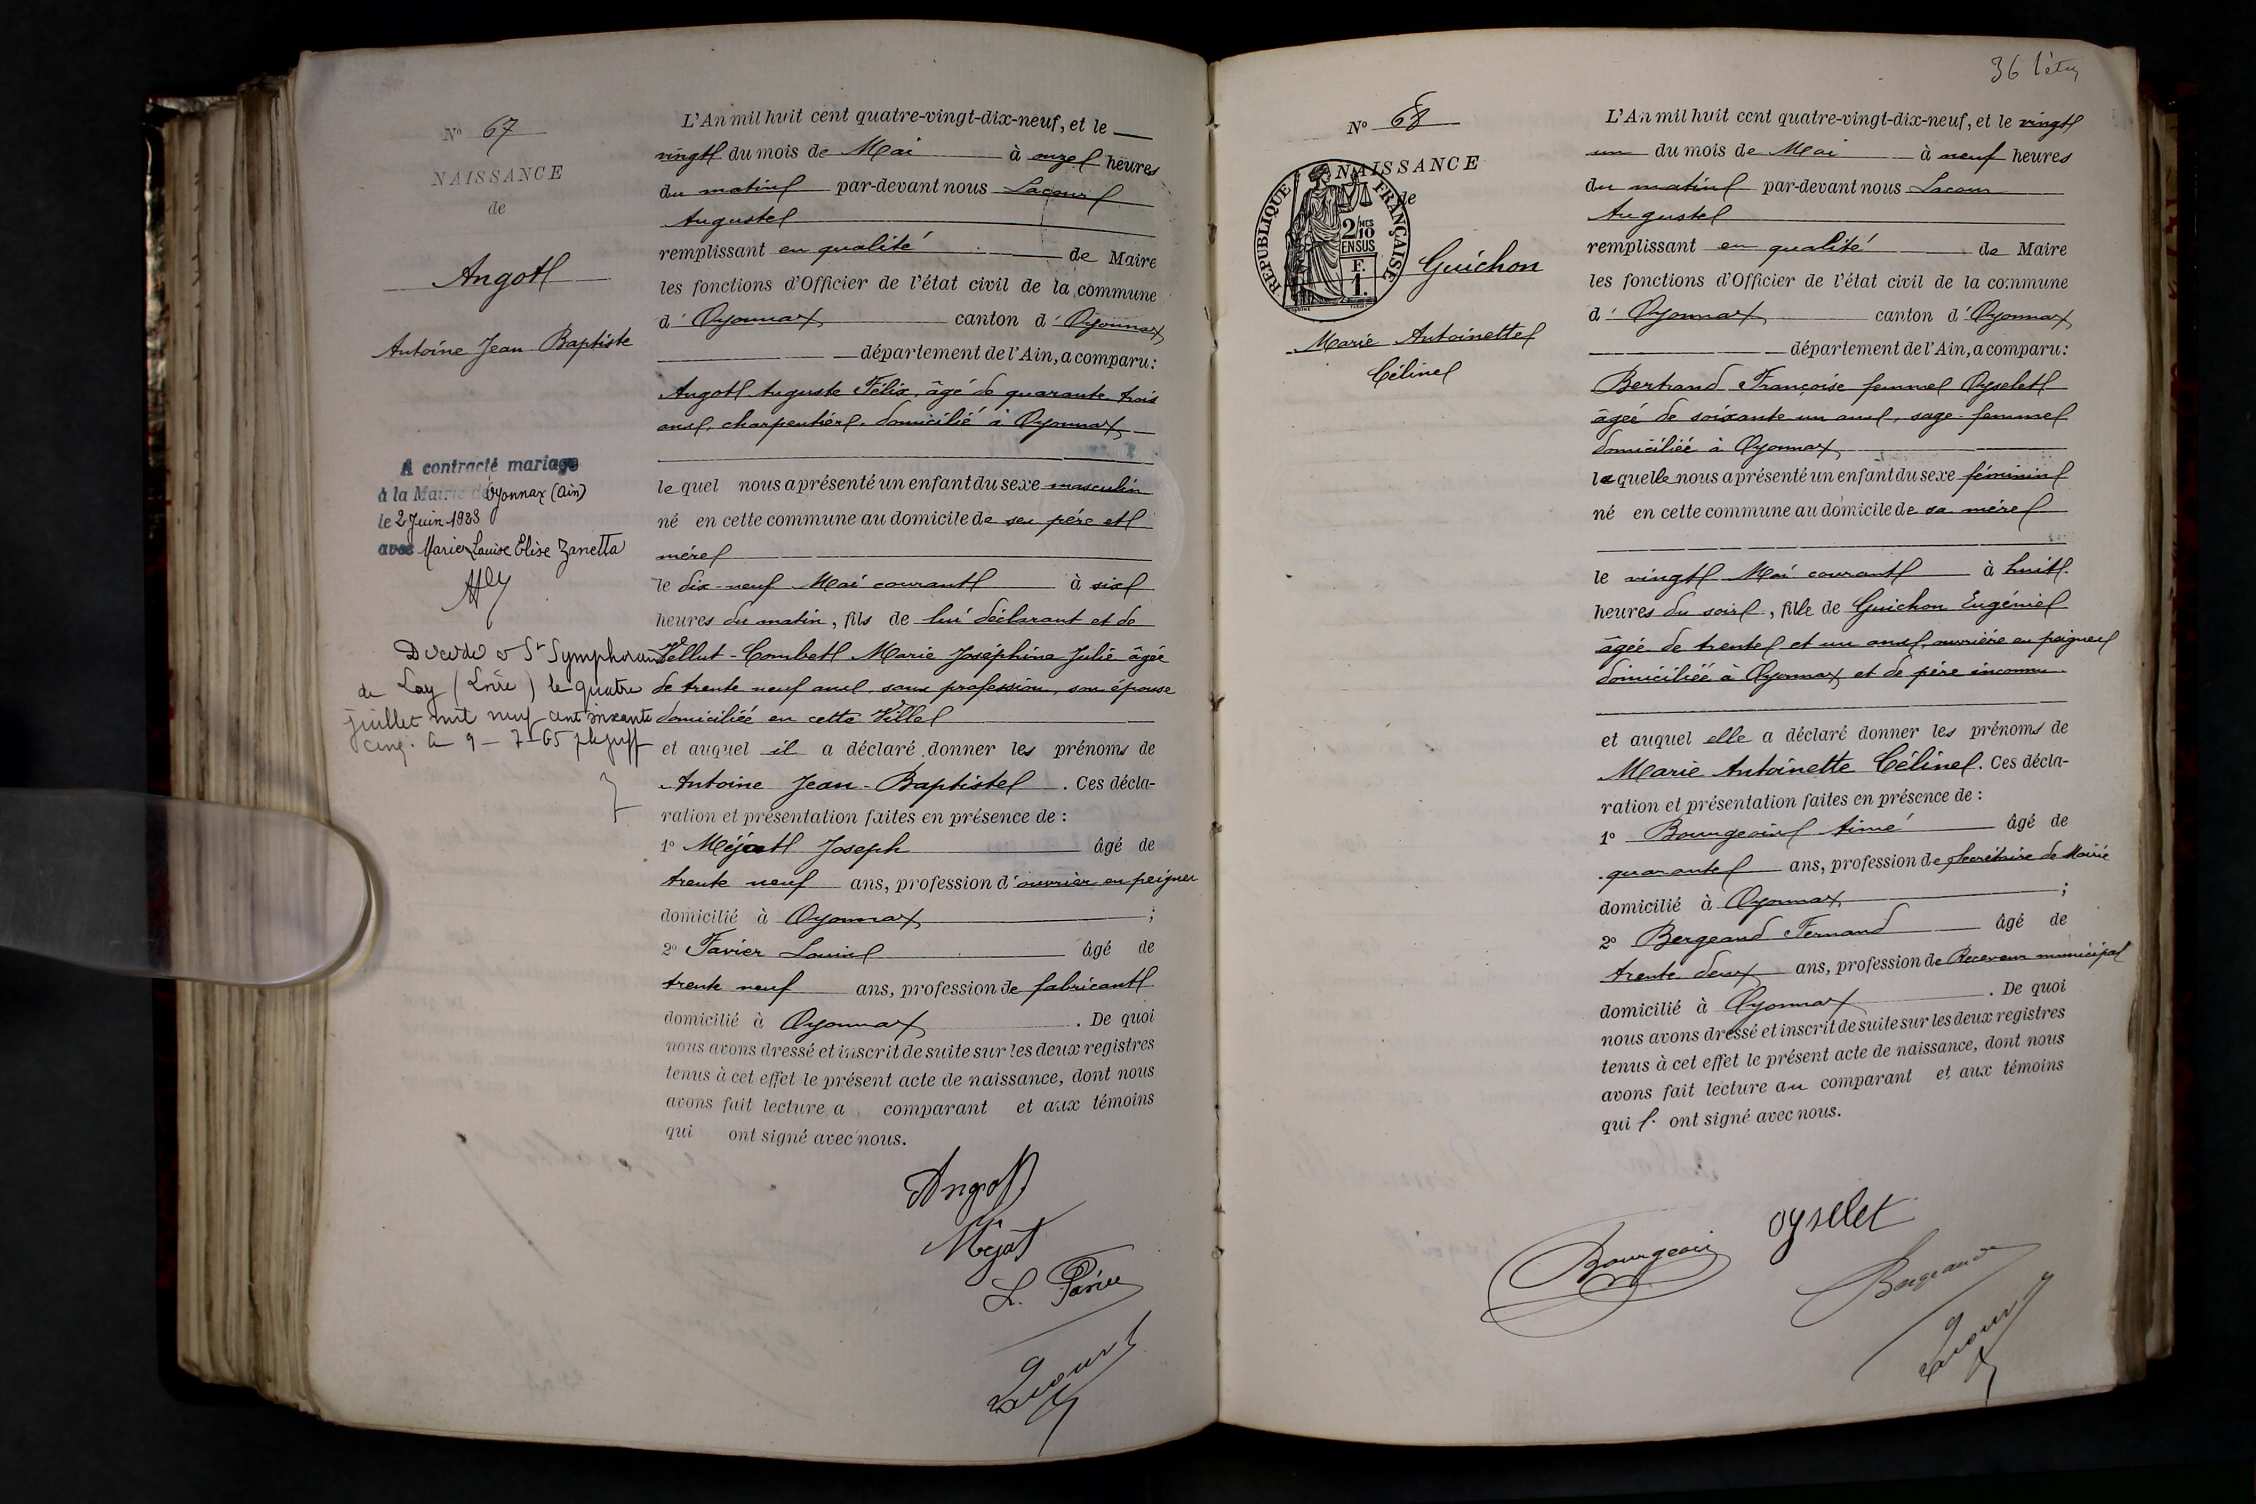 N° 67
NAISSANCE
de
Angot
Antoine Jean Baptiste
A contracté mariage
à la Mairie de Oyonnax (Ain)
le 2 Juin 1938
avec Marie Louise Elise Zanetta
Décédé à St Symphorien
de Lay (Loire) le quatre
juillet mil neuf cent soixante
cinq. Le 9-7-65
L'An mil huit cent quatre-vingt-dix-neuf, et le
vingt du mois de Mai à onze heures
du matin par-devant nous Lacour
Auguste
remplissant en qualité de Maire
les fonctions d'Officier de l'état civil de la commune
d' Oyonnax canton d' Oyonnax
département de l'Ain, a comparu :
Angot Auguste Félix, âgé de quarante trois
ans, charpentier, domicilié à Oyonnax
le quel nous a présenté un enfant du sexe masculin
né en cette commune au domicile de ses père et
mère
le dix-neuf Mai courant à six
heures du matin, fils de lui déclarant et de
Vellut-Combet Marie Joséphine Julie âgée
de trente neuf ans, sans profession, son épouse
domiciliée en cette Ville
et auquel il a déclaré donner les prénoms de
Antoine Jean-Baptiste . Ces décla-
ration et présentation faites en présence de :
1° Méjat Joseph âgé de
trente neuf ans, profession d'ouvrier en peignes
domicilié à Oyonnax ;
2° Favier Louis âgé de
trente neuf ans, profession de fabricant
domicilié à Oyonnax . De quoi
nous avons dressé et inscrit de suite sur les deux registres
tenus à cet effet le présent acte de naissance, dont nous
avons fait lecture a comparant et aux témoins
qui ont signé avec nous.
Angot
Méjat
L. Favier
Lacour
36
N° 68
NAISSANCE
de
RÉPUBLIQUE FRANÇAISE
2/10 MES
EN SUS
F.
1.
Guichon
Marie Antoinette
Céline
L'An mil huit cent quatre-vingt-dix-neuf, et le vingt
un du mois de Mai à neuf heures
du matin par-devant nous Lacour
Auguste
remplissant en qualité de Maire
les fonctions d'Officier de l'état civil de la commune
d' Oyonnax canton d' Oyonnax
département de l'Ain, a comparu :
Bertrand Françoise femme Oyselet
âgée de soixante un ans, sage-femme
domiciliée à Oyonnax
la quelle nous a présenté un enfant du sexe féminin
né en cette commune au domicile de sa mère
le vingt Mai courant à huit
heures du soir, fille de Guichon Eugénie
âgée de trente et un ans, ouvrière en peignes
domiciliée à Oyonnax et de père inconnu
et auquel elle a déclaré donner les prénoms de
Marie Antoinette Céline. Ces décla-
ration et présentation faites en présence de :
1° Bourgeois Aimé âgé de
quarante ans, profession de Secrétaire de Mairie
domicilié à Oyonnax ;
2° Bergeaud Fernand âgé de
trente deux ans, profession de Receveur municipal
domicilié à Oyonnax . De quoi
nous avons dressé et inscrit de suite sur les deux registres
tenus à cet effet le présent acte de naissance, dont nous
avons fait lecture au comparant et aux témoins
qui l' ont signé avec nous.
oyselet
Bourgeois
Bergeaud
Lacour